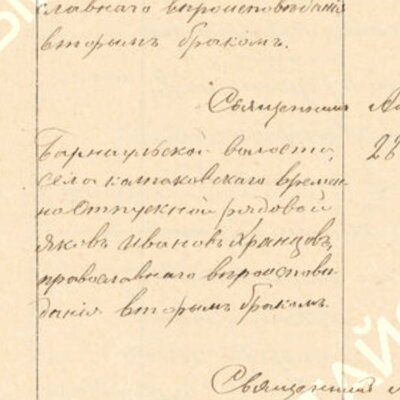 славнаго вѣроисповѣданія
вторымъ бракомъ.
Священникъ
Барнаульской волости,
села Колпаковскаго времен-
но отпускной рядовой
Яковъ Ивановъ Хранцовъ,
православнаго вѣроисповѣ-
данія вторымъ бракомъ.
Священникъ